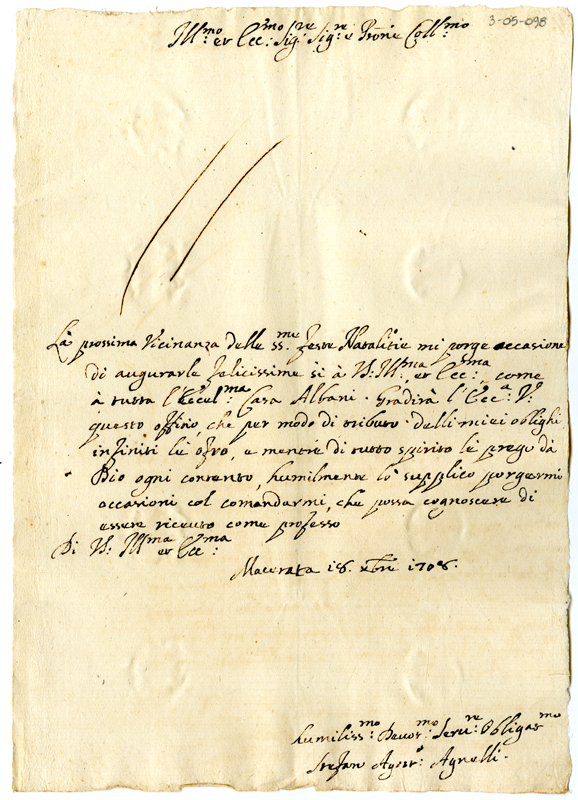 3-05-098
Ill:mo et Ecc:mo Sig:re Sig:re e Prone Coll:mo
La prossima Vicinanza delle ss:me feste Natalitie mi porge occasione
di augurarle felicissime si à V: Ill:ma et Ecc:ma, come
à tutta l'Eccel:ma Casa Albani. Gradirà l'Ecc:a V:
questo offitio, che per modo di tributo delli miei oblighi
infiniti le ofro, e mentre di tutto spirito le prego da
Dio ogni contento, humilmente lo supplico porgermi
occasioni col comandarmi, che possa cognoscere di
essere riceuuto come professo
Di V: Ill:ma et Ecc:ma
Macerata 18. xbre 1708.
humiliss:mo Deuot:mo Seru:re Obligat:mo
Stefan Agost:o Agnelli.